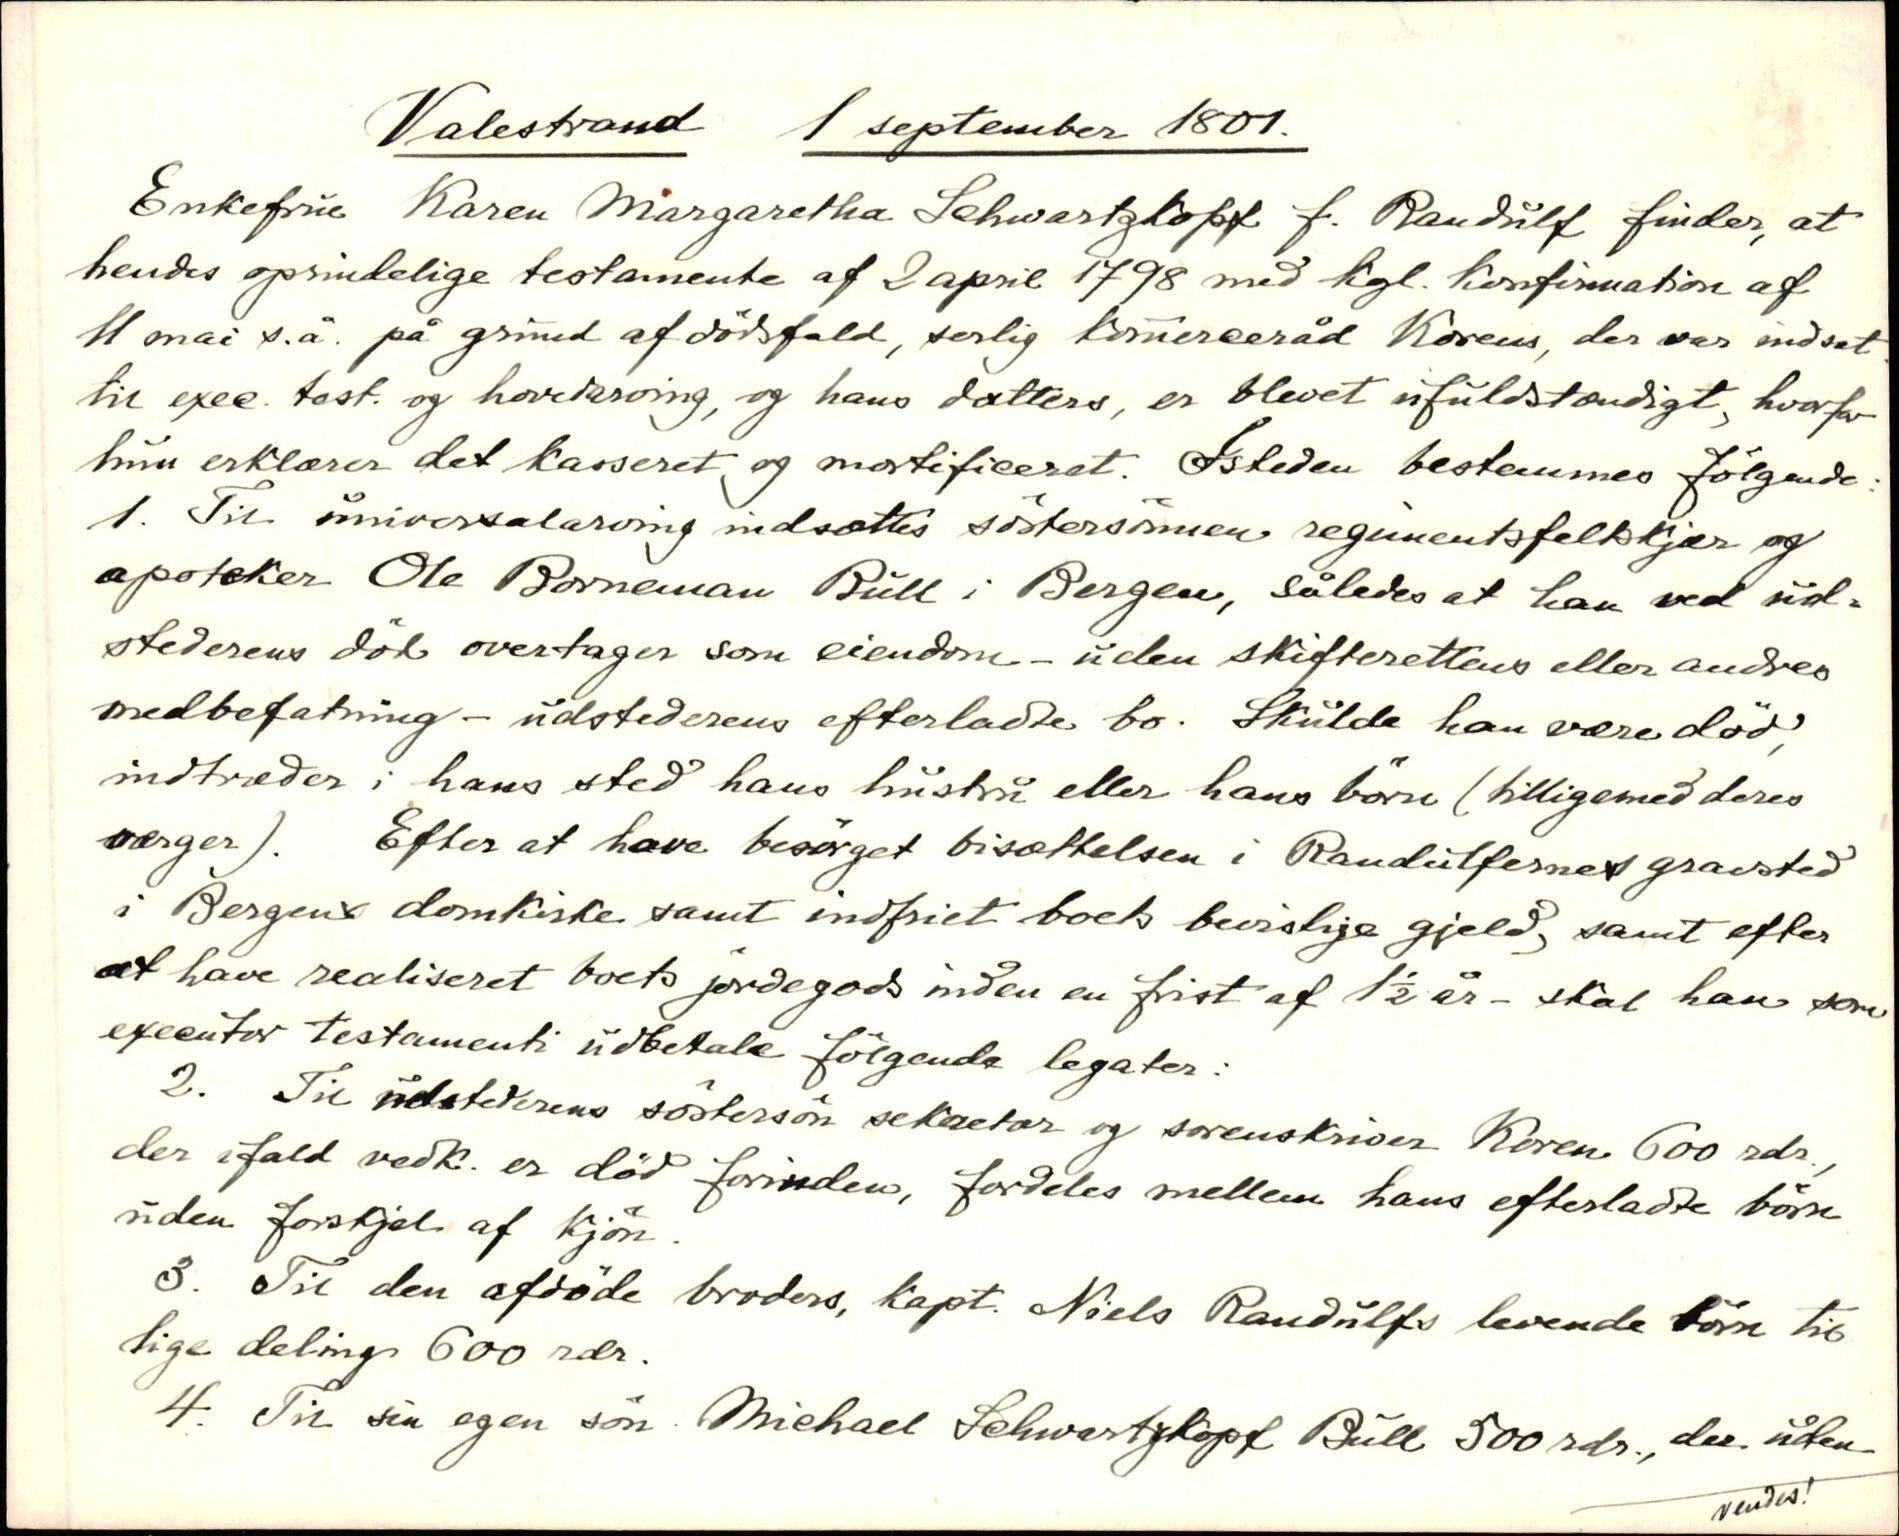 Valestrand 1 september 1801.
Enkefrue Karen Margaretha Schwartzkopf f. Randulf finder, at
hendes oprindelige testamente af 2 april 1798 med kgl. konfirmation af
11 mai s.å. på grund af dödsfald, serlig kom̄erceråd Korens, der var indsat
til exec. test. og hovedarving, og hans datters, er blevet ufuldstændigt, hvorfor
hun erklærer det kasseret og mortificeret. Isteden bestemmes fölgende:
1. Til universalarving indsættes söstersönnen regimentsfeltskjær og
apoteker Ole Borneman Bull i Bergen, således at han ved ud-
stederens död overtager som eiendom - uden skifterettens eller andres
medbefatning - udstederens efterladte bo. Skulde han være död,
indtræder i hans sted hans hustru eller hans börn (tilligemed deres
værger). Efter at have besörget bisættelsen i Randulfernes gravsted
i Bergens domkirke samt indfriet boets bevislige gjeld, samt efter
at have realiseret boets jordegods inden en frist af 1½ år - skal han som
executor testamenti udbetale fölgende legater:
2. Til udstederens söstersön sekretær og sorenskriver Koren 600 rdr.,
der ifald vedk. er död forinden, fordeles mellem hans efterladte börn
uden forskjel af kjön.
3. Til den afdöde broders, kapt. Niels Randulfs levende börn til
lige deling 600 rdr.
4. Til sin egen sön Michael Schwartzkopf Bull 500 rdr., der uden
vendes!